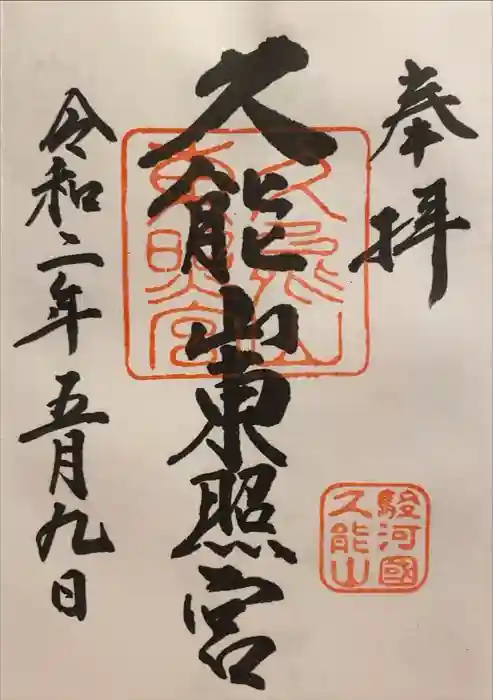 奉拝
久能山東照宮
久能山
東照宮
駿河國
久能山
令和二年五月九日